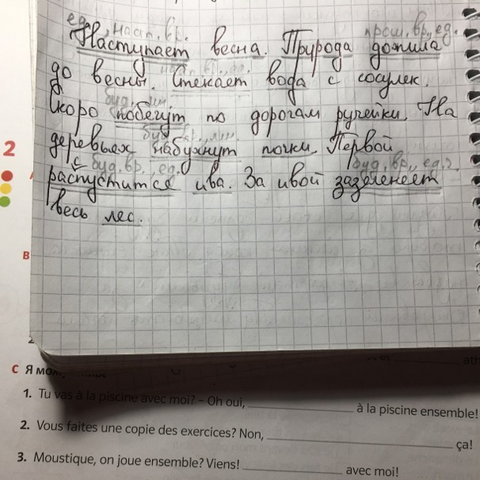 ед., наст.вр. прош.вр., ед.
Наступает весна. Природа дожила
до весны. Стекает вода с сосулек.
буд.
Скоро побегут по дорогам ручейки. На
деревьях набухнут почки. Первой
буд.вр., ед. буд.вр., ед.ч.
распустится ива. За ивой зазеленеет
весь лес.
2
B
C Я мо
1. Tu vas à la piscine avec moi? – Oh oui, à la piscine ensemble!
2. Vous faites une copie des exercices? Non, ça!
3. Moustique, on joue ensemble? Viens! avec moi!